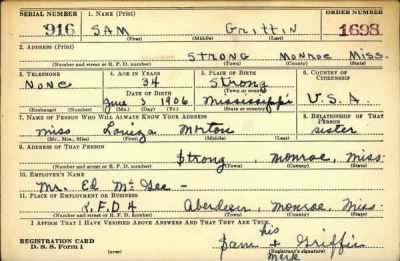 SERIAL NUMBER 1. NAME (Print) ORDER NUMBER
916 SAM Griffin 1698
(First) (Middle) (Last)
2. ADDRESS (Print)
Strong Monroe Miss.
(Number and street or R. F. D. number) (Town) (County) (State)
3. TELEPHONE 4. AGE IN YEARS 5. PLACE OF BIRTH 6. COUNTRY OF CITIZENSHIP
None 34 Strong
DATE OF BIRTH (Town or county)
June 3 1906 Mississippi U.S.A.
(Exchange) (Number) (Mo.) (Day) (Yr.) (State or country)
7. NAME OF PERSON WHO WILL ALWAYS KNOW YOUR ADDRESS 8. RELATIONSHIP OF THAT PERSON
Miss Louiza Morton sister
(Mr., Mrs., Miss) (First) (Middle) (Last)
9. ADDRESS OF THAT PERSON
Strong, Monroe, Miss.
(Number and street or R. F. D. number) (Town) (County) (State)
10. EMPLOYER'S NAME
Mr. Ed McGee -
11. PLACE OF EMPLOYMENT OR BUSINESS
R.F.D.4 Aberdeen, Monroe, Miss.
(Number and street or R. F. D. number) (Town) (County) (State)
I AFFIRM THAT I HAVE VERIFIED ABOVE ANSWERS AND THAT THEY ARE TRUE.
his
REGISTRATION CARD
D. S. S. Form 1 (over) Sam + Griffin
(Registrant's signature)
Mark